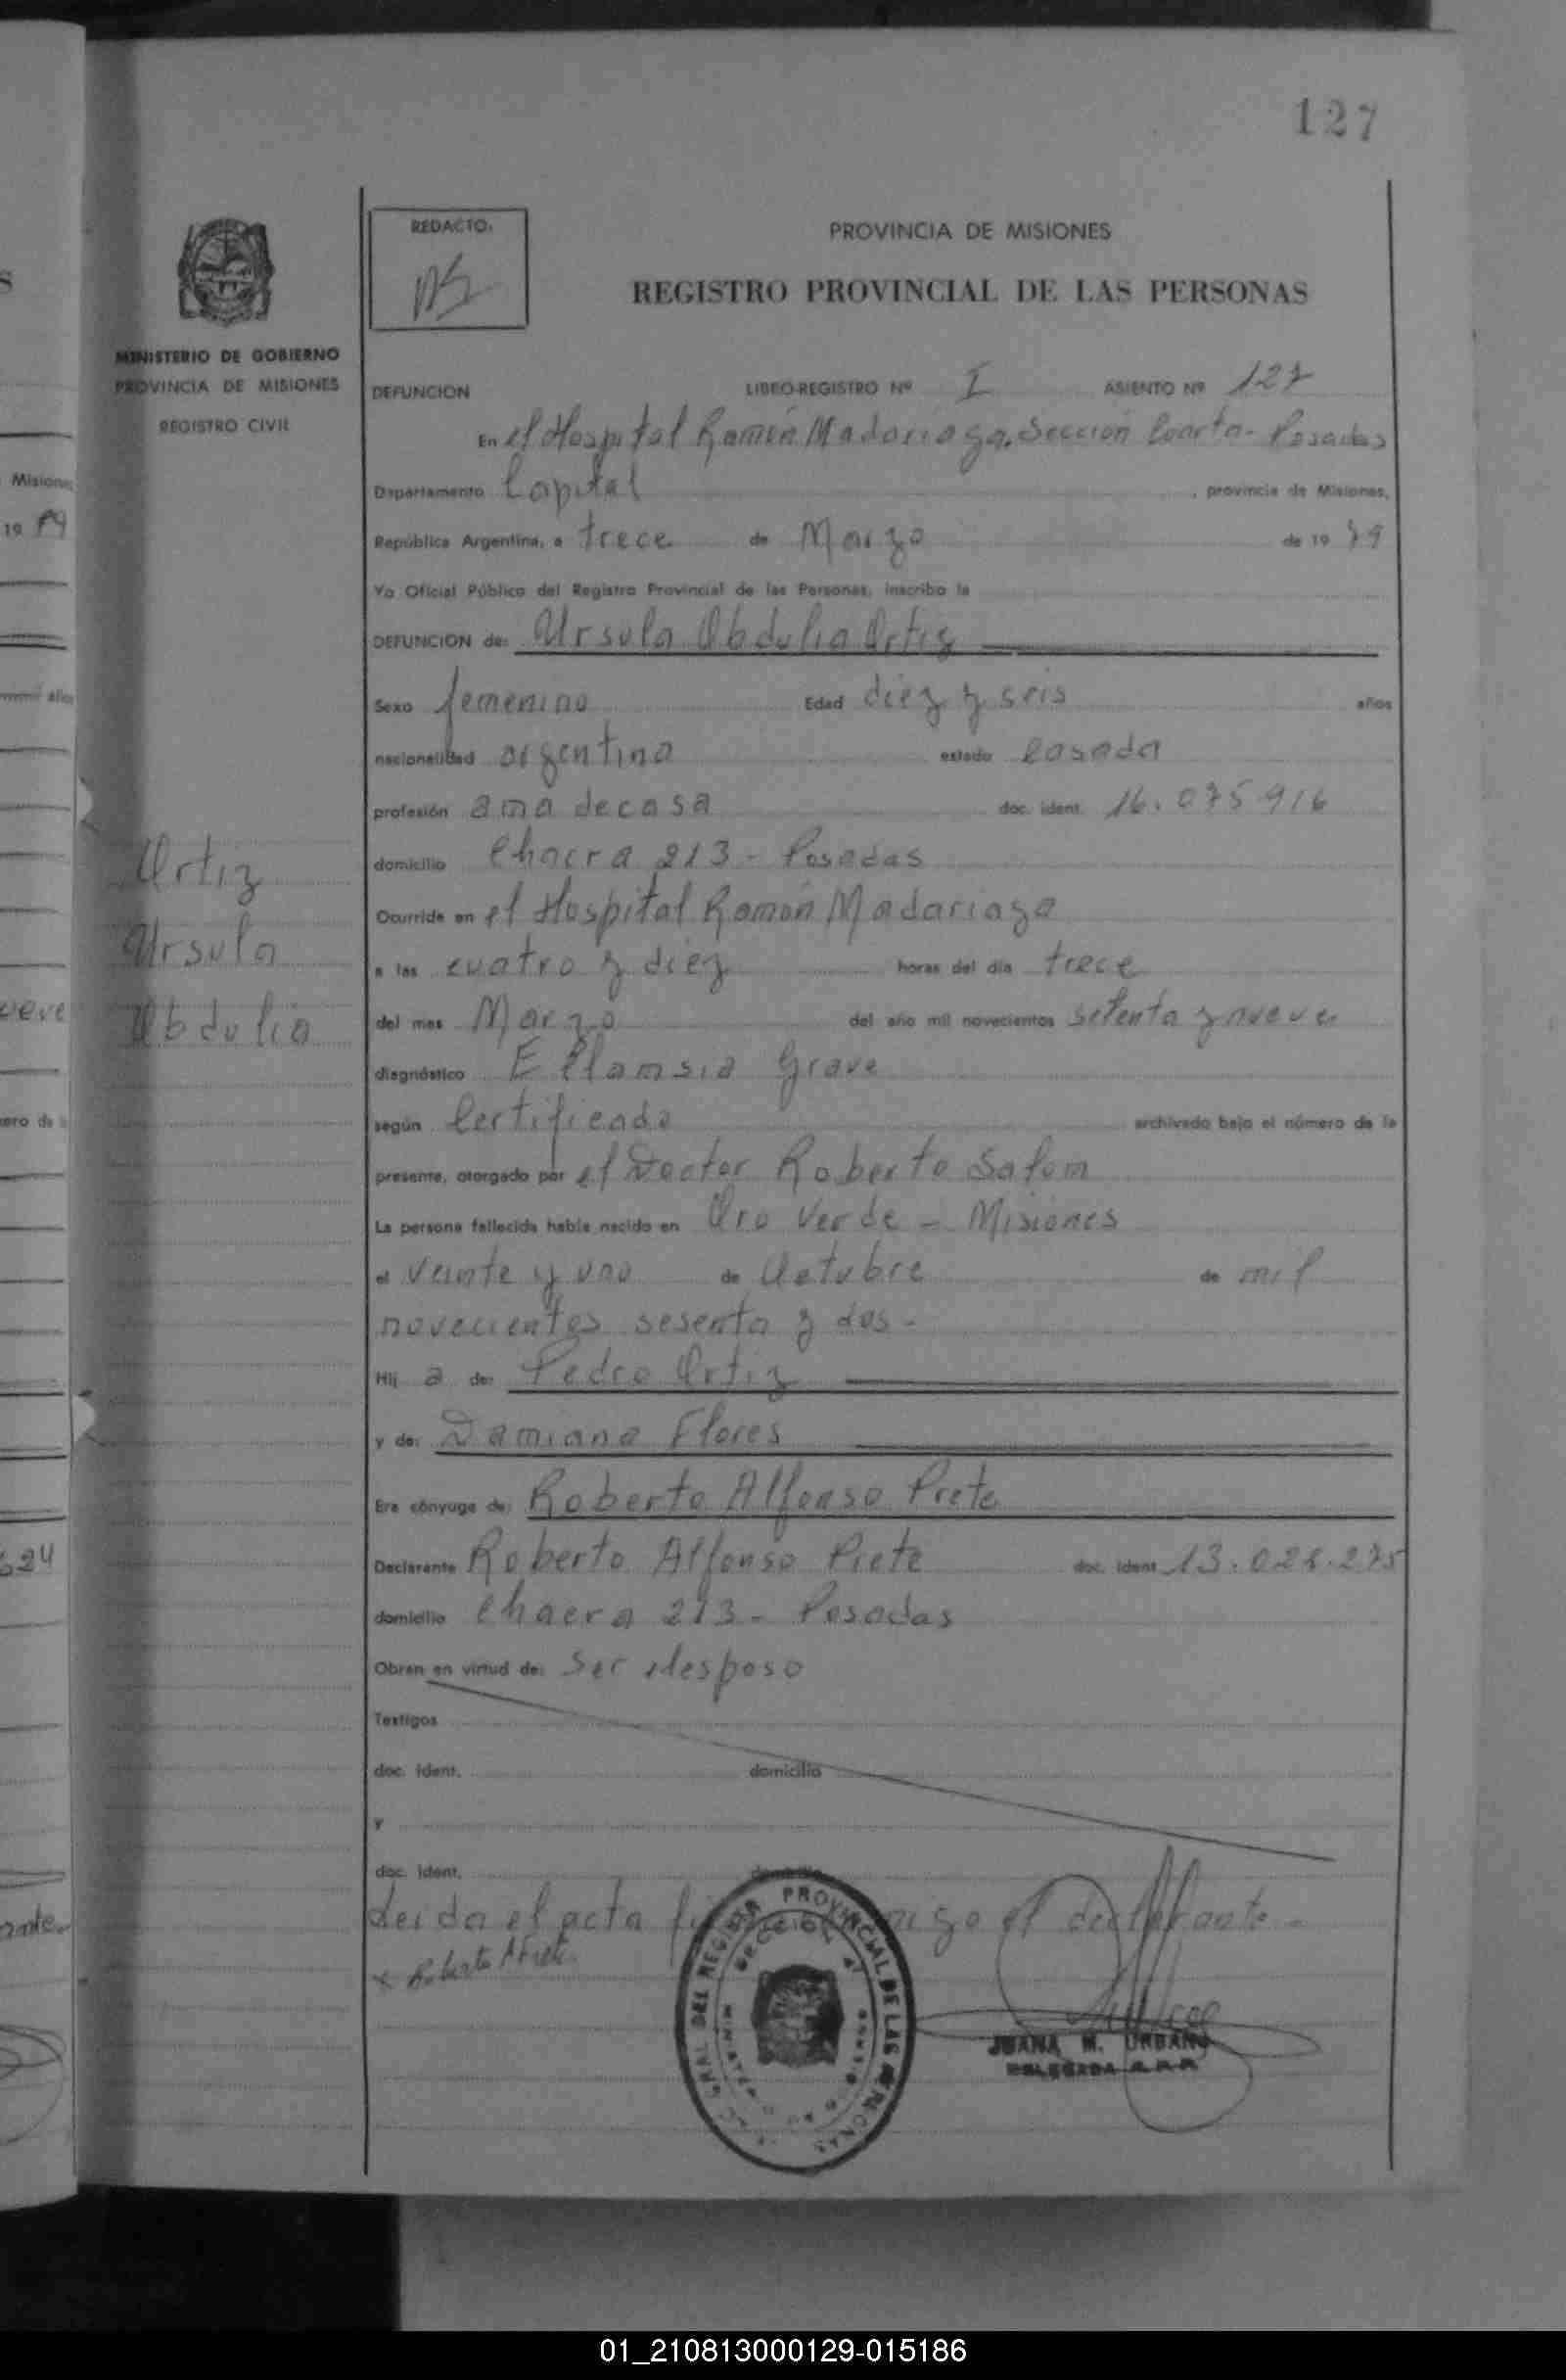 127
REDACTO.
PROVINCIA DE MISIONES
REGISTRO PROVINCIAL DE LAS PERSONAS
MINISTERIO DE GOBIERNO
PROVINCIA DE MISIONES
REGISTRO CIVIL
DEFUNCION LIBRO-REGISTRO Nº I ASIENTO Nº 127
En el Hospital Ramón Madariaga. Sección Cuarta - Posadas
Departamento Capital, provincia de Misiones,
República Argentina, a trece de Marzo de 19 79
Yo Oficial Público del Registro Provincial de las Personas, inscribo la
DEFUNCION de: Ursula Obdulia Ortiz
Sexo femenino Edad diez y seis años
nacionalidad argentina estado Casada
profesión ama de casa doc. ident. 16.075916
domicilio Chacra 213 - Posadas
Ortiz
Ursula
Obdulia
Ocurrida en el Hospital Ramón Madariaga
a las cuatro y diez horas del día trece
del mes Marzo del año mil novecientos setenta y nueve
diagnóstico Eclamsia Grave
según Certificado archivado bajo el número de la
presente, otorgado por el Doctor Roberto Salom
La persona fallecida había nacido en Oro Verde - Misiones
el veinte y uno de Octubre de mil
novecientos sesenta y dos -
Hij a de: Pedro Ortiz
y de: Damiana Flores
Era cónyuge de: Roberto Alfonso Prete
Declarante Roberto Alfonso Prete doc. ident. 13.024.275
domicilio Chacra 213 - Posadas
Obran en virtud de: Ser el esposo
Testigos
doc. ident. domicilio
y
doc. ident. domicilio
Leida el acta el declarante -
Roberto A Prete
JUANA M. URBANO
DELEGADA R.P.P.
Misiones
19 79
años
ueve
624
01_210813000129-015186